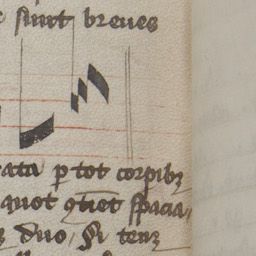 sunt breues
rata p tot corpibꝫ
quot ꝯtinet spacia,
duo, Si tenꝫ